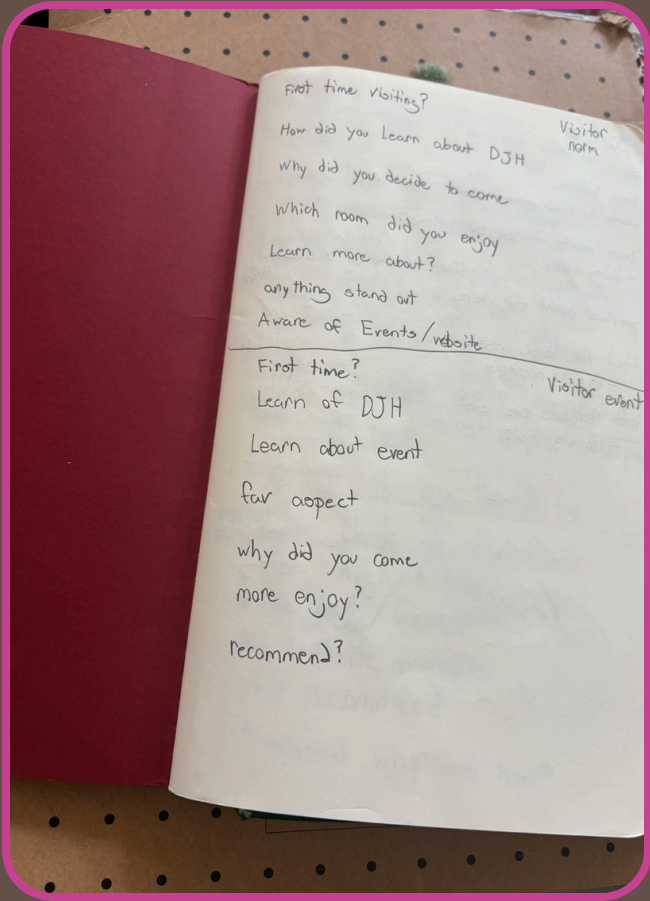 First time visiting?
Visitor
norm
How did you Learn about DJH
Why did you decide to come
Which room did you enjoy
Learn more about?
anything stand out
Aware of Events/website
First time?
Visitor event
Learn of DJH
Learn about event
fav aspect
why did you come
more enjoy?
recommend?